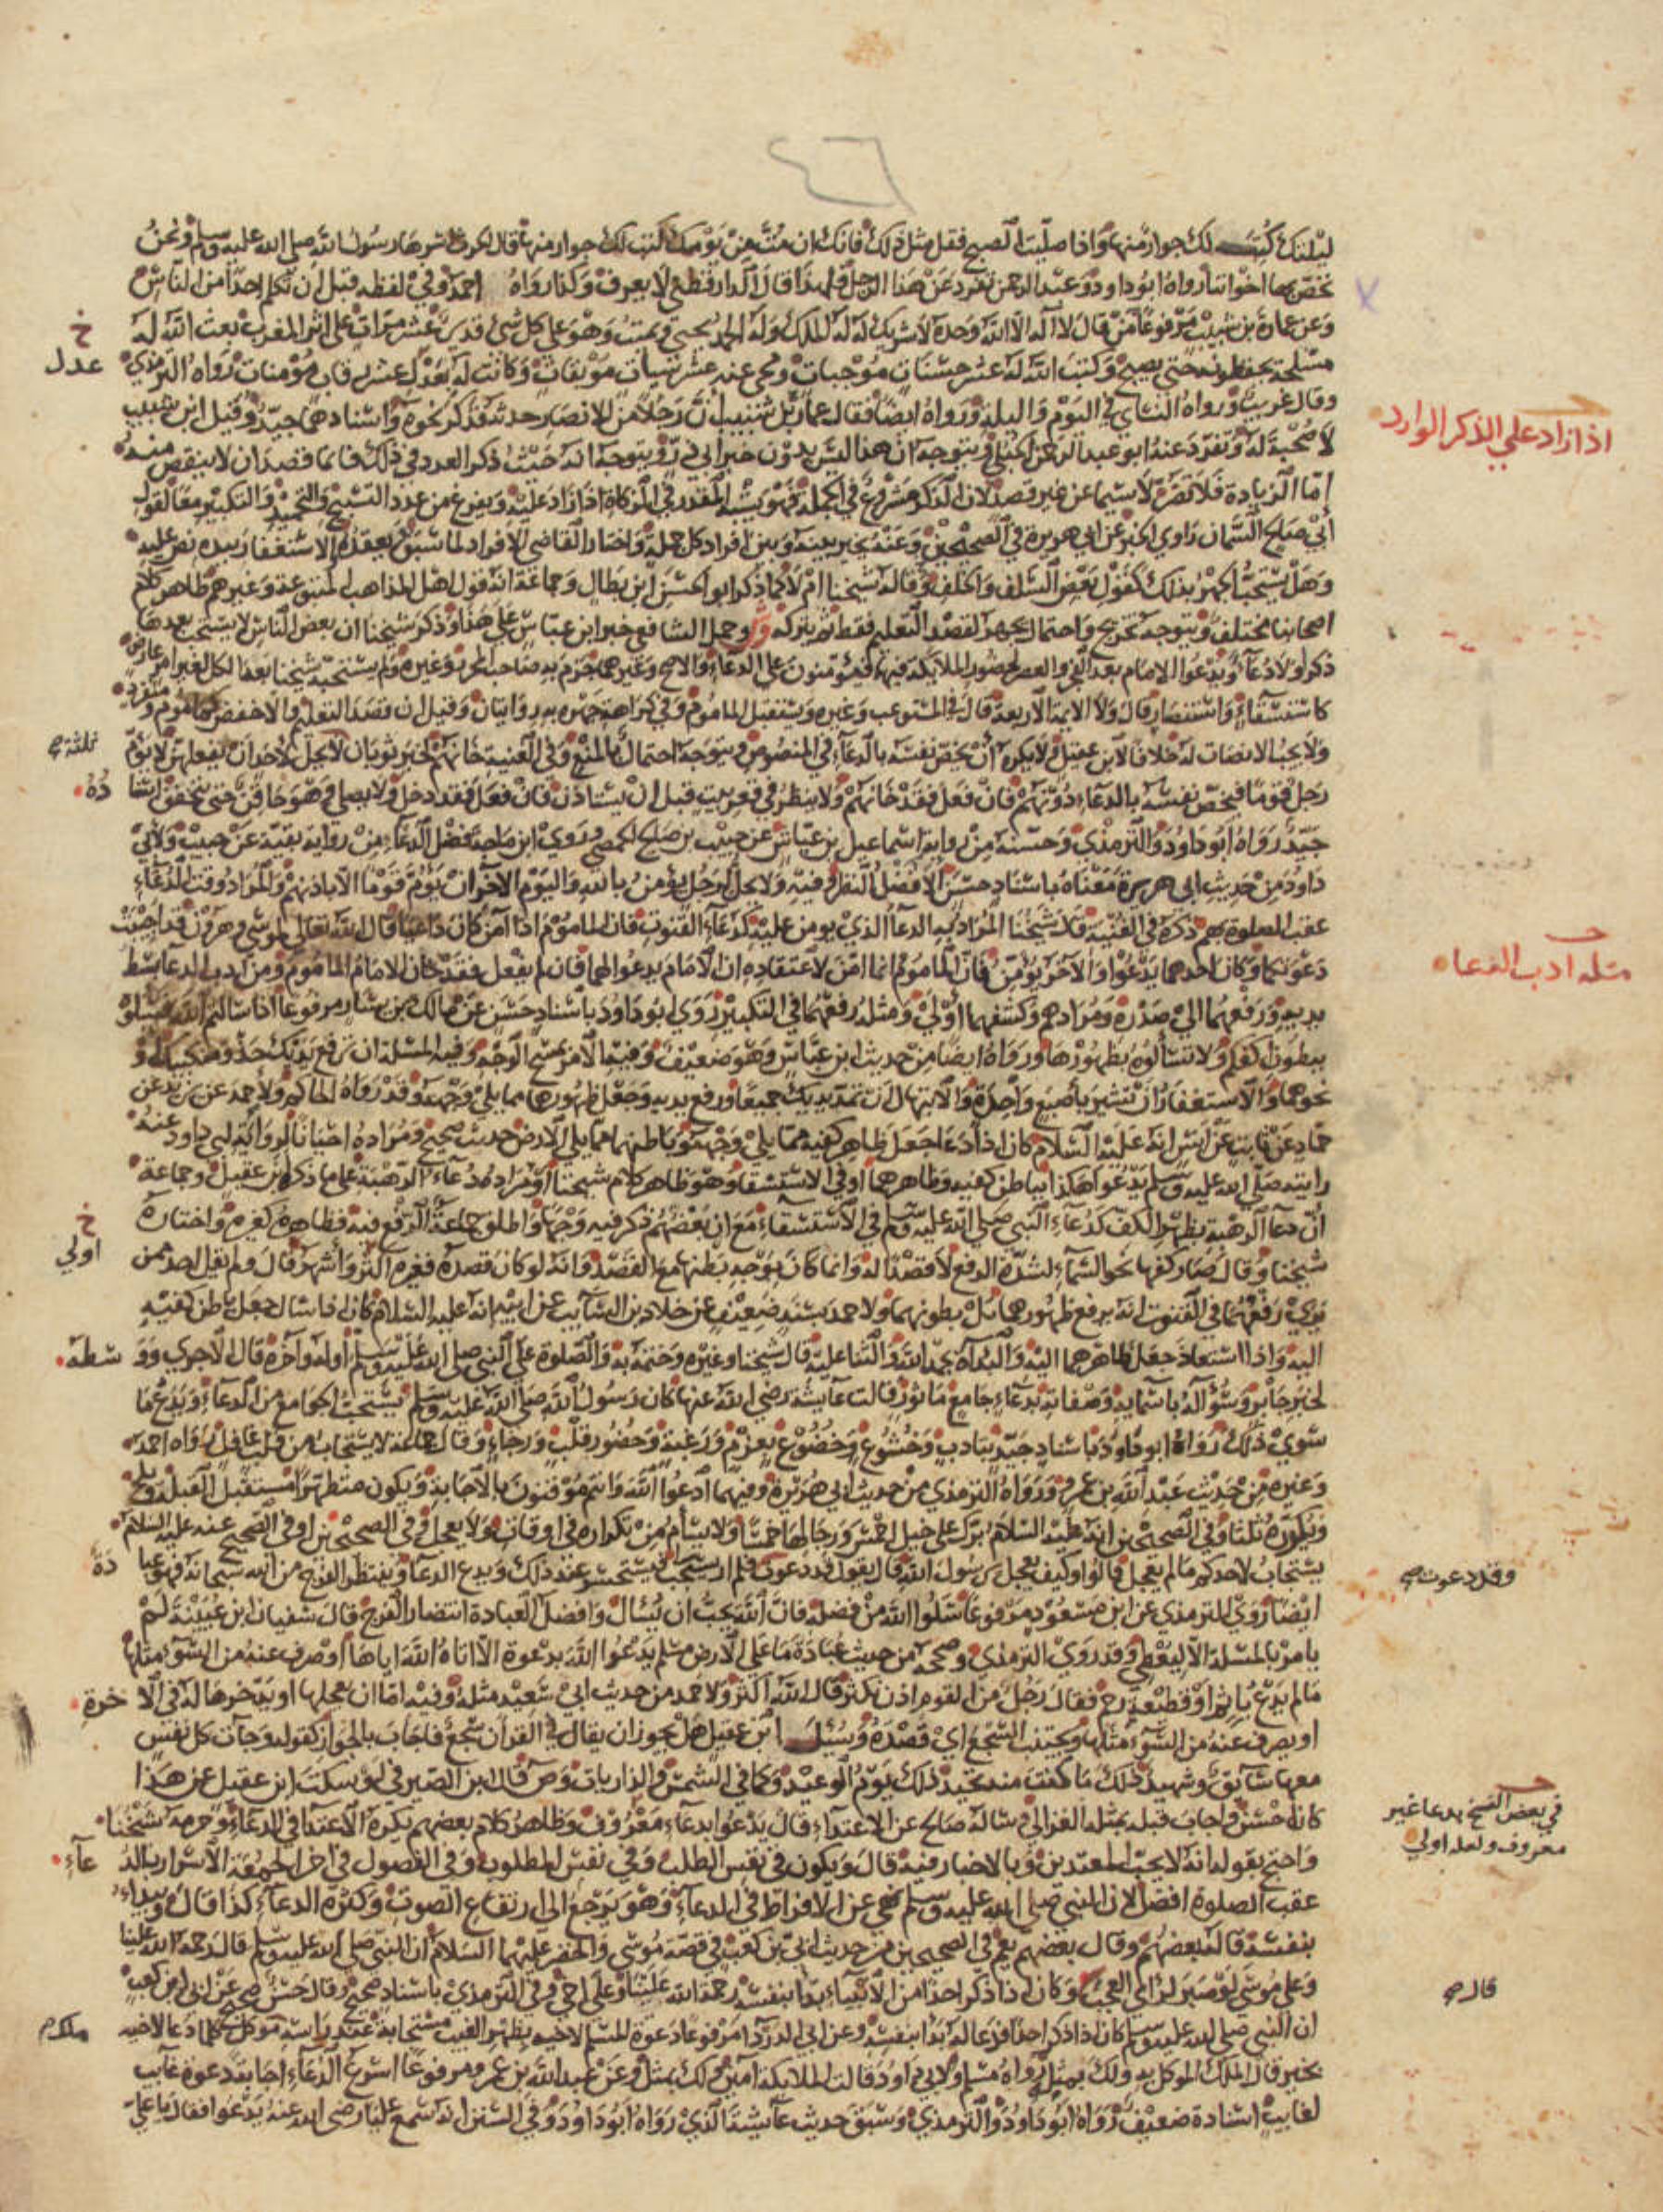 ٤٦
ليلتك كتب لك جوار منها واذا صليت الصبح فقل مثل ذلك فانك ان مت من يومك كتب لك جوار منها قال الحرث اسرها رسول الله صلى الله عليه وسلم ونحن
نخص بها اخواننا رواه ابوداود وعبد الرحمن تفرد عن هذا الرجل فلهذا قال الدارقطني لا يعرف وكذا رواه احمد وفي لفظه قبل ان تكلم احدا من الناس
وعن عمارة بن شبيب مرفوعا من قال لا اله الا الله وحده لا شريك له له الملك وله الحمد يحيي ويميت وهو على كل شيء قدير عشر مرات على اثر المغرب بعث الله له
مسلحة يحفظونه حتى يصبح وكتب الله له عشر حسنات موجبات ومحى عنه عشر سيات موبقات وكانت له بعدل عشر رقاب مؤمنات رواه الترمذي
خ عدل
وقال غريب ورواه النساي في اليوم والليلة ورواه ايضا فقال عمارة بن شبيب ان رجلا من الانصار حدثه فذكر نحوه واسنادهما جيد وقيل ابن شبيب
لا صحبة له وتفرد عنه ابو عبد الرحمن الحبلي ويتوجه ان هذا ليس بدون خبر ابي ذر ويتوجه انه حيث ذكر العدد في ذلك فانما قصد ان لا ينقص منه
اذا زاد على الذكر الوارد
اما الزيادة فلا تضر لا سيما عن غير قصد لان الذكر مشروع في الجملة فهو يشبه المقدر في الزكاة اذا زاد عليه ويفرغ من عدد التسبيح والتحميد والتكبير معا لقول
ابي صالح السمان راوي الخبر عن ابي هريرة في الصحيحين وعنه يخير بينه وبين افراد كل جملة واختار القاضي الافراد لما سبق ويعقده والاستغفار بيده نص عليه
وهل يستحب الجهر بذلك كقول بعض السلف والخلف وقاله شيخنا ام لا كما ذكر ابو الحسن ابن بطال وجماعة انه قول اهل المذاهب المتبوعة وغيرهم ظاهر كلام
اصحابنا مختلف ويتوجه تخريج واحتمال يجهر لقصد التعليم فقط ثم يتركه وحمل الشافعي خبر ابن عباس على هذا وذكر شيخنا ان بعض الناس لا يستحب بعدها
ذكرا ولا دعاء ويدعوا الامام بعد الفجر والعصر لحضور الملائكة فيهما فيؤمنون على الدعاء والاصح وغيرهما جزم به صاحب المحرر وغيره ولم يستحبه شيخنا بعد الكل لغير امر عارض
كاستسقاء واستنصار قال ولا الائمة الاربعة قال في المستوعب وغيره ويستقبل الماموم وفي كراهة جهره به روايتان وقيل ان قصد التعليم والا خفض كماموم ومنفرد
ولا يجب الانصات له خلافا لابن عقيل ولا يكره ان يخص نفسه بالدعاء في المنصوص ويتوجه احتمال بالمنع وفي الغنية خانهم لخبر ثوبان لا يحل لاحد ان يفعلهن لا يؤم
ثلثة صح
رجل قوما فيخص نفسه بالدعاء دونهم فان فعل فقد خانهم ولا ينظر في قعر بيت قبل ان يستاذن فان فعل فقد دخل ولا يصلي وهو حاقن حتى يتخفف اسنا
ده
جيد رواه ابوداود والترمذي وحسنه من رواية اسماعيل بن عياش عن حبيب بن صالح الحمصي وروى ابن ماجه فصل الدعاء من رواية بقية عن حبيب ولابي
داود من حديث ابي هريرة معناه باسناد حسن الا فصل النظر وفيه ولا يحل لرجل يؤمن بالله واليوم الاخر ان يؤم قوما الا باذنهم والمراد وقت الدعاء
عقب الصلوة بهم ذكره في الغنية قال شيخنا المراد به الدعا الذي يومن عليه كدعاء القنوت فان الماموم اذا آمن كان داعيا قال الله تعالى لموسى وهرون قد اجيبت
دعوتكما وكان احدهما يدعوا والاخر يؤمن فان الماموم انما امن لاعتقاده ان الامام يدعوا لهما فان لم يفعل فقد خان الامام الماموم ومن ادب الدعا بسط
مسلة ادب الدعا
يديه ورفعهما الى صدره ومرادهم وكشفهما اولى ومثله رفعهما في التكبير روى ابوداود باسناد حسن عن مالك بن يسار مرفوعا اذا سالتم الله فسلوه
ببطون اكفكم ولا تسالوه بظهورها ورواه ايضا من حديث ابن عباس وهو ضعيف وفيهما الامر بمسح الوجه وفيه المسلة ان ترفع يديك حذو منكبيك او
نحوهما والاستغفار ان تشير باصبع واحدة والابتهال ان تمد يديك جميعا ورفع يديه وجعل ظهورهما مما يلي وجهه وقد رواه الحاكم ولاحمد عن يزيد عن
حماد عن ثابت عن انس انه عليه السلام كان اذا دعا جعل ظاهر كفيه مما يلي وجهه وباطنهما مما يلي الارض حديث صحيح ومراده احيانا لرواية ابي داود عنه
رايته صلى الله عليه وسلم يدعوا هكذا بباطن كفيه وظاهرهما او في الاستسقا وهو ظاهر كلام شيخنا او مراده دعاء الرهبة على ما ذكره ابن عقيل وجماعة
ان دعا الرهبة بظهر الكف كدعاء النبي صلى الله عليه وسلم في الاستسقاء مع ان بعضهم ذكر فيه وجها واطلق جماعة الرفع فيه فظاهره كغيره واختاره
خ اولي
شيخنا وقال صار كفهما نحو السماء لشدة الرفع لا قصدا له وانما كان يوجه بطنهما مع القصد وانه لو كان قصده فغيره اكثر واشهر قال ولم يقل احد ممن
يرى رفعهما في القنوت انه يرفع ظهورهما بل بطونهما ولاحمد بسند ضعيف عن خلاد بن السايب عن ابيه انه عليه السلام كان اذا سال جعل باطن كفيه
اليه واذا استعاذ جعل ظاهرهما اليه والبداءة بحمد الله والثنا عليه قال شيخنا وغيره وختمه به والصلوة على النبي صلى الله عليه وسلم اوله وآخره قال الاجري وو
سطه
لخبر جابر وسؤاله باسمايه وصفاته بدعاء جامع ماثور قالت عايشة رضي الله عنها كان رسول الله صلى الله عليه وسلم يستحب الجوامع من الدعاء ويدع ما
سوى ذلك رواه ابوداود باسناد جيد بتادب وخشوع وخضوع بعزم ورغبة وحضور قلب ورجاء وقال جماعة لا يستجاب من قلب غافل رواه احمد
وغيره من حديث عبد الله بن عمر ورواه الترمذي من حديث ابي هريرة وفيهما ادعوا الله وانتم موقنون بالاجابة ويكون متطهرا مستقبل القبلة ويلح
ويكرره ثلثا وفي الصحيحين انه عليه السلام برك على خيل احمس ورجالها خمسا ولا يسأم من تكراره في اوقات ولا يعجل ففي الصحيحين او في الصحيح عنه عليه السلام
يستجاب لاحدكم ما لم يعجل قالوا وكيف يعجل يرسول الله قال يقول قد دعوت فلم ار يستجب فيستحسر عند ذلك ويدع الدعا وينتظر الفرج من الله سبحانه فهو عبا
دة
وقد دعوت صح
ايضا روى الترمذي عن ابن مسعود مرفوعا سلوا الله من فضله فان الله يحب ان يسال وافضل العبادة انتضار الفرج قال سفيان ابن عيينة لم
يامر بالمسلة الا ليعطي وقد روى الترمذي وصححه من حديث عبادة ما على الارض مسلم يدعوا الله بدعوة الا اتاه الله اياها او صرف عنه من السوء مثلها
مالم يدع باثم او قطيعة رحم فقال رجل من القوم اذن نكثر قال الله اكثر ولاحمد من حديث ابي سعيد مثله وفيه اما ان يعجلها او يدخرها له في الا
خرة
او يصرف عنه من السوء مثلها ويجتنب السجع اي قصده وسئل ابن عقيل هل يجوز ان يقال في القرآن سجع فاجاب بالجواز كقوله وجآت كل نفس
معها سائق وشهيد ذلك ما كنت منه تحيد ذلك يوم الوعيد وكما في الشمس والذاريات وص قال ابن الصيرفي لو سكت ابن عقيل عن هذا
كان احسن واجاب قبله بمثله الغزالي سالة صالح عن الاعتداء قال يدعوا بدعاء معروف وظاهر كلام بعضهم يكره الاعتدا في الدعاء وحرمه شيخنا
في بعض النسخ بدعا غير
معروف ولعله اولى
واحتج بقوله انه لا يحب المعتدين وبالاخبار فيه قال ويكون في نفس الطلب وفي نفس المطلوب وفي الفصول في اخر الجمعة الاسرار بالد
عآء
عقب الصلوة افضل لان النبي صلى الله عليه وسلم نهى عن الافراط في الدعاء وهو يرجع الى ارتفاع الصوت وكثرة الدعاء كذا قال ويبداء
بنفسه قاله بعضهم وقال بعضهم يعم في الصحيحين من حديث ابي بن كعب في قصة موسى والخضر عليهما السلام ان النبي صلى الله عليه وسلم قال رحمة الله علينا
وعلى موسى لو صبر لرأى العجب وكان اذا ذكر احدا من الانبياء بدا بنفسه رحمة الله علينا وعلى اخي وفي الترمذي باسناد صحيح وقال حسن صحيح عن ابي ابن كعب
قال صح
ان النبي صلى الله عليه وسلم كان اذا ذكر احدا فدعا له بدا بنفسه وعن ابي الدرداء مرفوعا دعوة المسلم لاخيه بظهر الغيب مستجابة عند راسه موكل كلما دعا لاخيه
ملك صح
بخير قال الملك الموكل به ولك بمثل رواه مسلم ولابي داود قالت الملائكة آمين ولك بمثل وعن عبد الله بن عمر ومرفوعا اسرع الدعاء اجابة دعوة غايب
لغايب اسناده ضعيف رواه ابوداود والترمذي وسبق حديث عايشة الذي رواه ابوداود وفي السنن انه سمع عليا رضي الله عنه يدعوا فقال يا علي